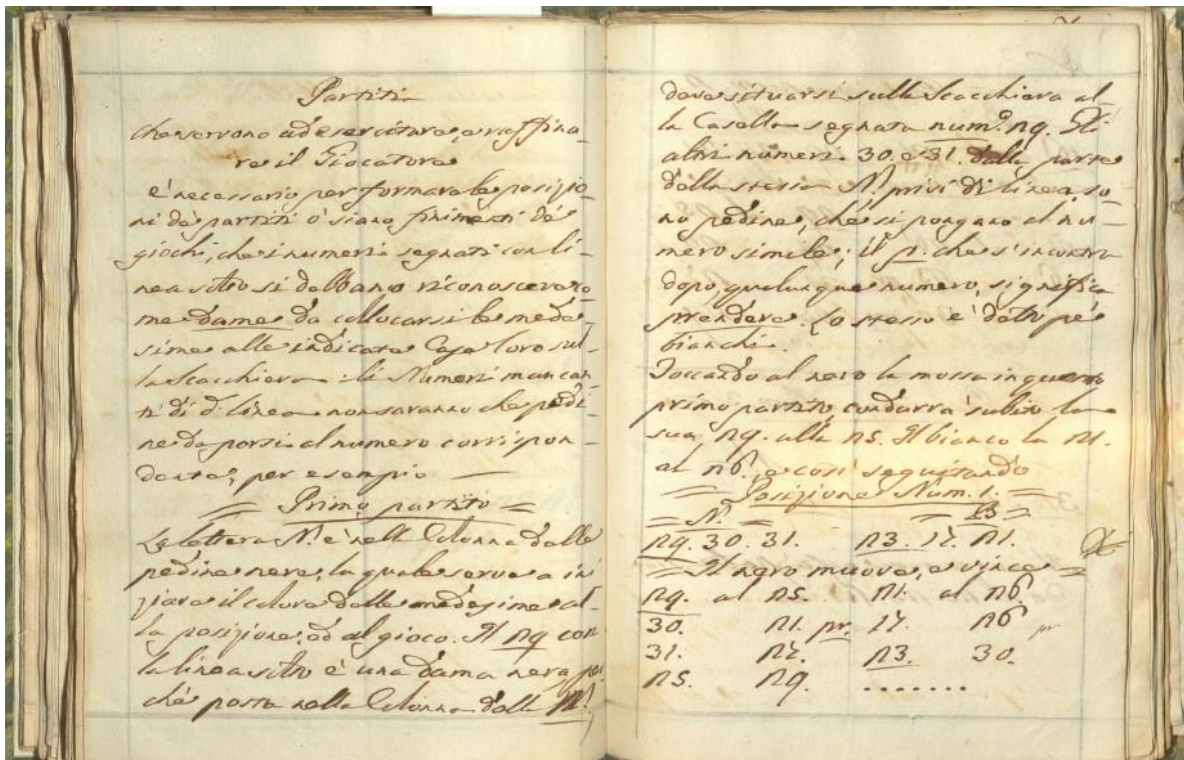 Partiti
che servono ad esercitare, e raffina
re il Giocatore
è necessario per formare le posizio
ni de' partiti o' siano finimenti de'
giochi, che i numeri segnati con li-
nea sotto si debbano riconoscere co
me dame da collocarsi le mede
sime alle indicate Case loro sul-
la Scacchiera: li Numeri mancan
ti di d.a linea non saranno che pedi-
ne da porsi al numero corrispon-
dente, per esempio —
= Primo partito =
La lettera N. è nella Colonna delle
pedine nere, la quale serve a in
ziare il colore delle medesime al-
la posizione, ed al gioco. Il 29 con
la linea sotto è una dama nera per
chè posta nella Colonna della N.
deve situarsi sulla Scacchiera al-
la Casella segnata num.o 29. Gli
altri numeri 30. e 31. dalla parte
della stessa N. prisi di linea, so-
no pedine, che si pongano al nu-
mero simile; il p. che s'incontra
dopo qualunque numero, significa
prendere. Lo stesso è detto pe'
bianchi.
Toccando al nero la mossa in questo
primo partito, condurrà subito la
sua 29. alla 25. Il bianco la 21.
al 26, e così seguitando
= Posizione Núm. 1. =
= N. = = B =
29. 30. 31. 23. 17. 21.
= Il negro muove, e vince =
29. al 25. 21. al 26
30. 21. pr. 17. 26 pr
31. 22. 23. 30.
25. 29. .......